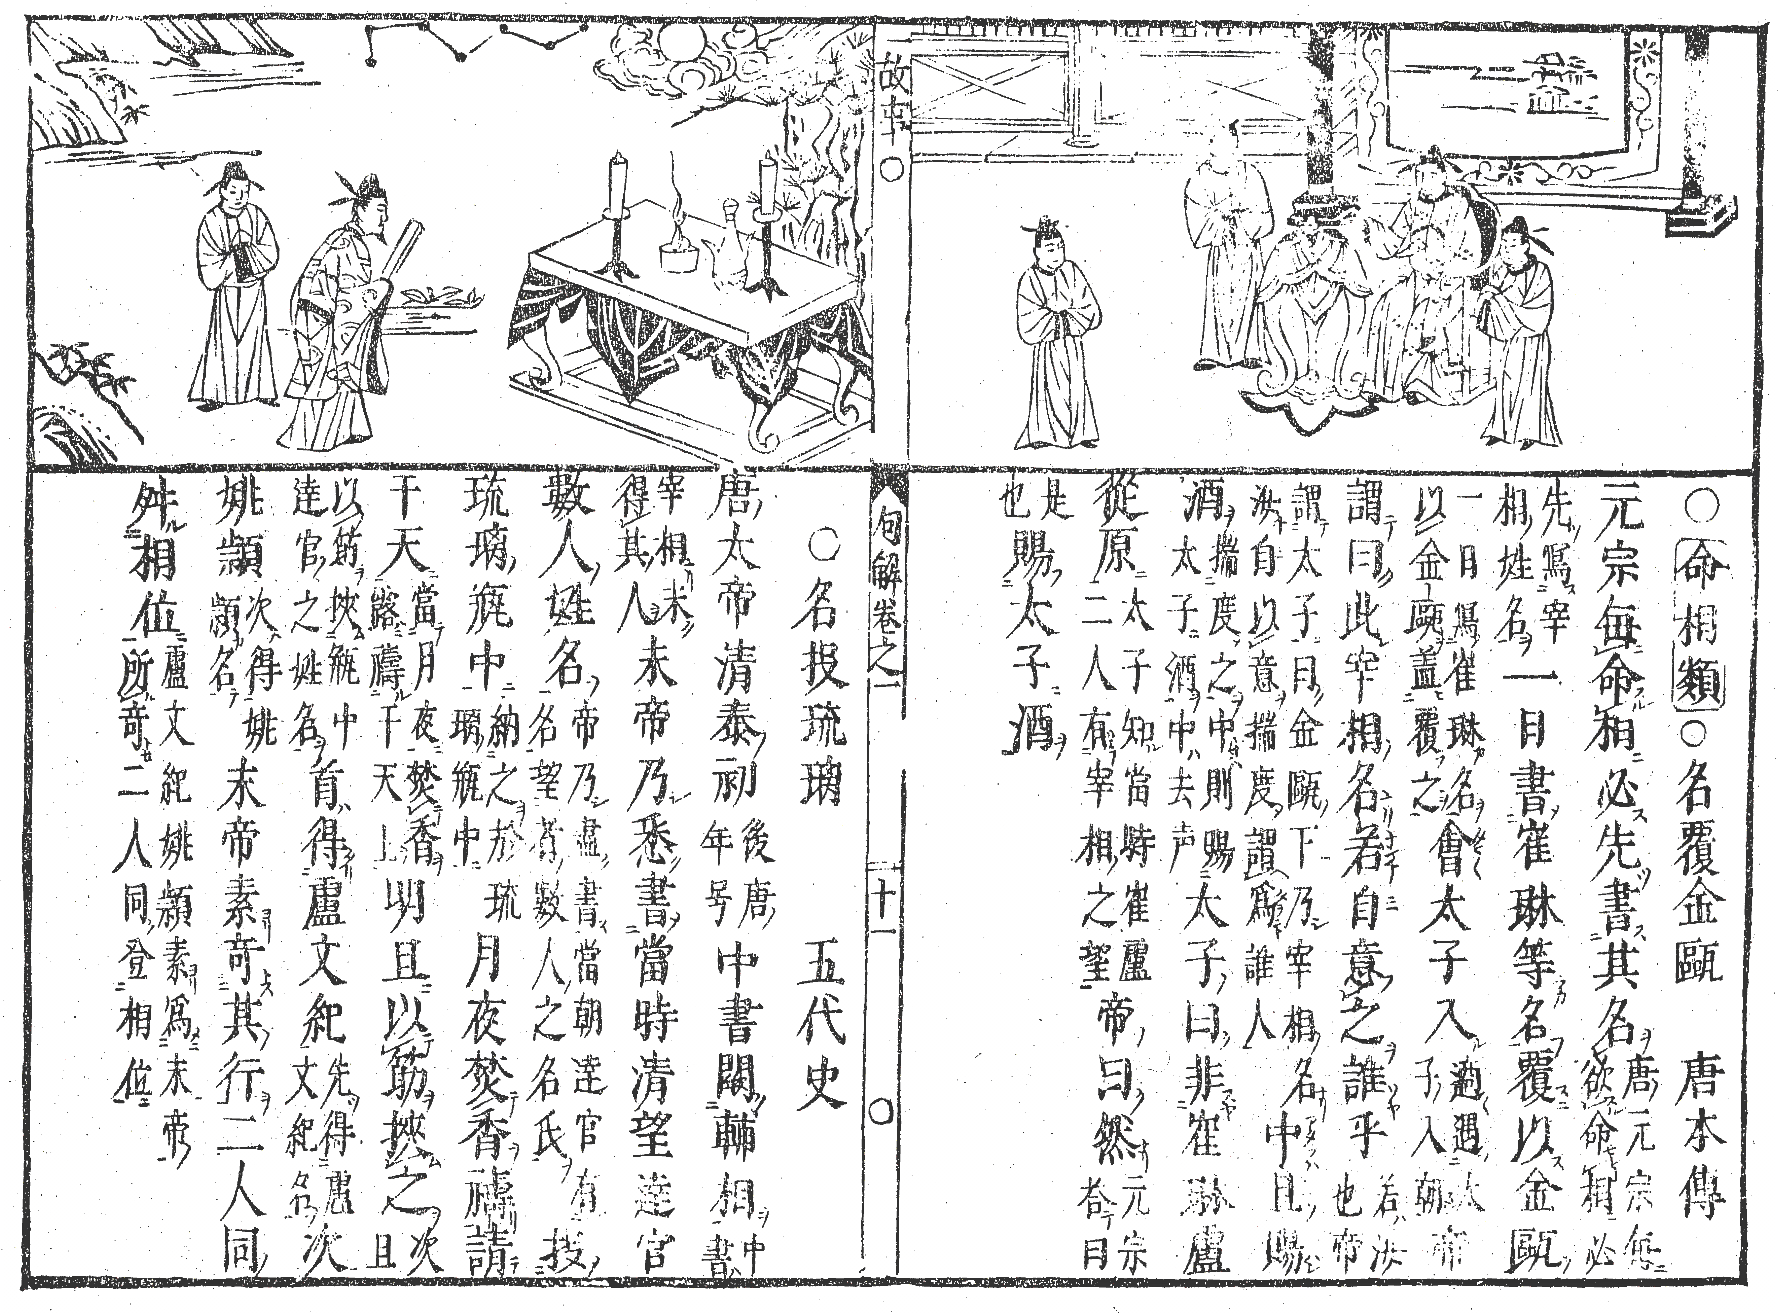 ○命相類○名覆金甌　唐本傳
元宗每命相必先書其名唐元宗每欲命相必
先寫宰相姓名一日書崔琳等名覆以金甌
一日寫崔琳名以金甌蓋覆之會太子入適遇太子入朝帝
謂曰此宰相名若自意之誰乎若汝也帝
謂太子曰金甌下乃宰相名汝自以意揣度謂爲誰人中且賜
酒揣度之中則賜太子酒中去声太子曰非崔琳盧
從原太子知當時崔盧二人有宰相之望帝曰然元宗答曰
是也賜太子酒
故事○
句解卷之一
十一
○名投琉璃　五代史
唐太帝清泰初後唐年号中書闕輔相中書
宰相未得其人末帝乃悉書當時清望達官
數人姓名帝乃盡書當朝達官有名望者數人之名氏投
琉璃瓶中納之於琉璃瓶中月夜焚香禱請
于天當月夜焚香露禱于天上明旦以筯挾之次旦
以筯挾瓶中達官之姓名首得盧文紀先得盧文紀名次
姚顗次得姚顗名末帝素奇其行二人同
舛相位盧文紀姚顗素爲末帝所奇二人同登相位